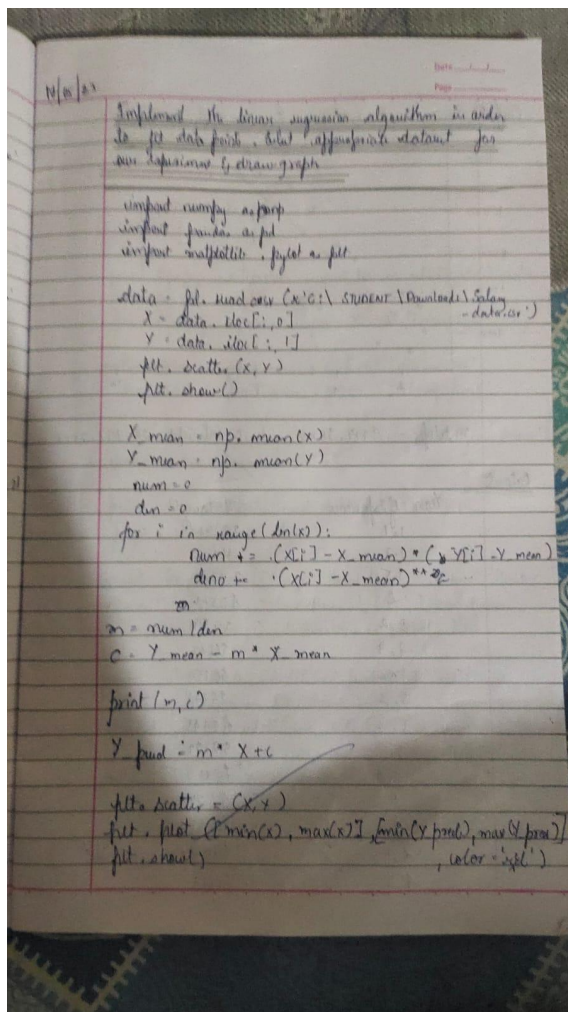 Date
Page
Implement the linear regression algorithm in order
to fit data points. Select appropriate dataset for
our experiment & draw graph
import numpy as np
import pandas as pd
import matplotlib . pyplot as plt
data = pd. read csv (r'C:\ STUDENT \Downloads \ Salary
- data.csv')
X = data. iloc[:,0]
Y = data. iloc[:, 1]
plt. scatter (X, Y)
plt. show()
X_mean = np. mean(X)
Y_mean = np. mean(Y)
num = 0
den = 0
for i in range (len(x)):
num += (X[i] - X_mean) * (Y[i] - Y_mean)
deno += (X[i] - X_mean)** 2
m
m = num / den
C = Y_mean - m * X_mean
print (m,c)
Y_pred = m* X+c
plt. scatter = (X,Y)
plt . plot ([min(x), max(x)], [min(Y_pred), max(Y_pred)]
plt . show() , color = 'red')